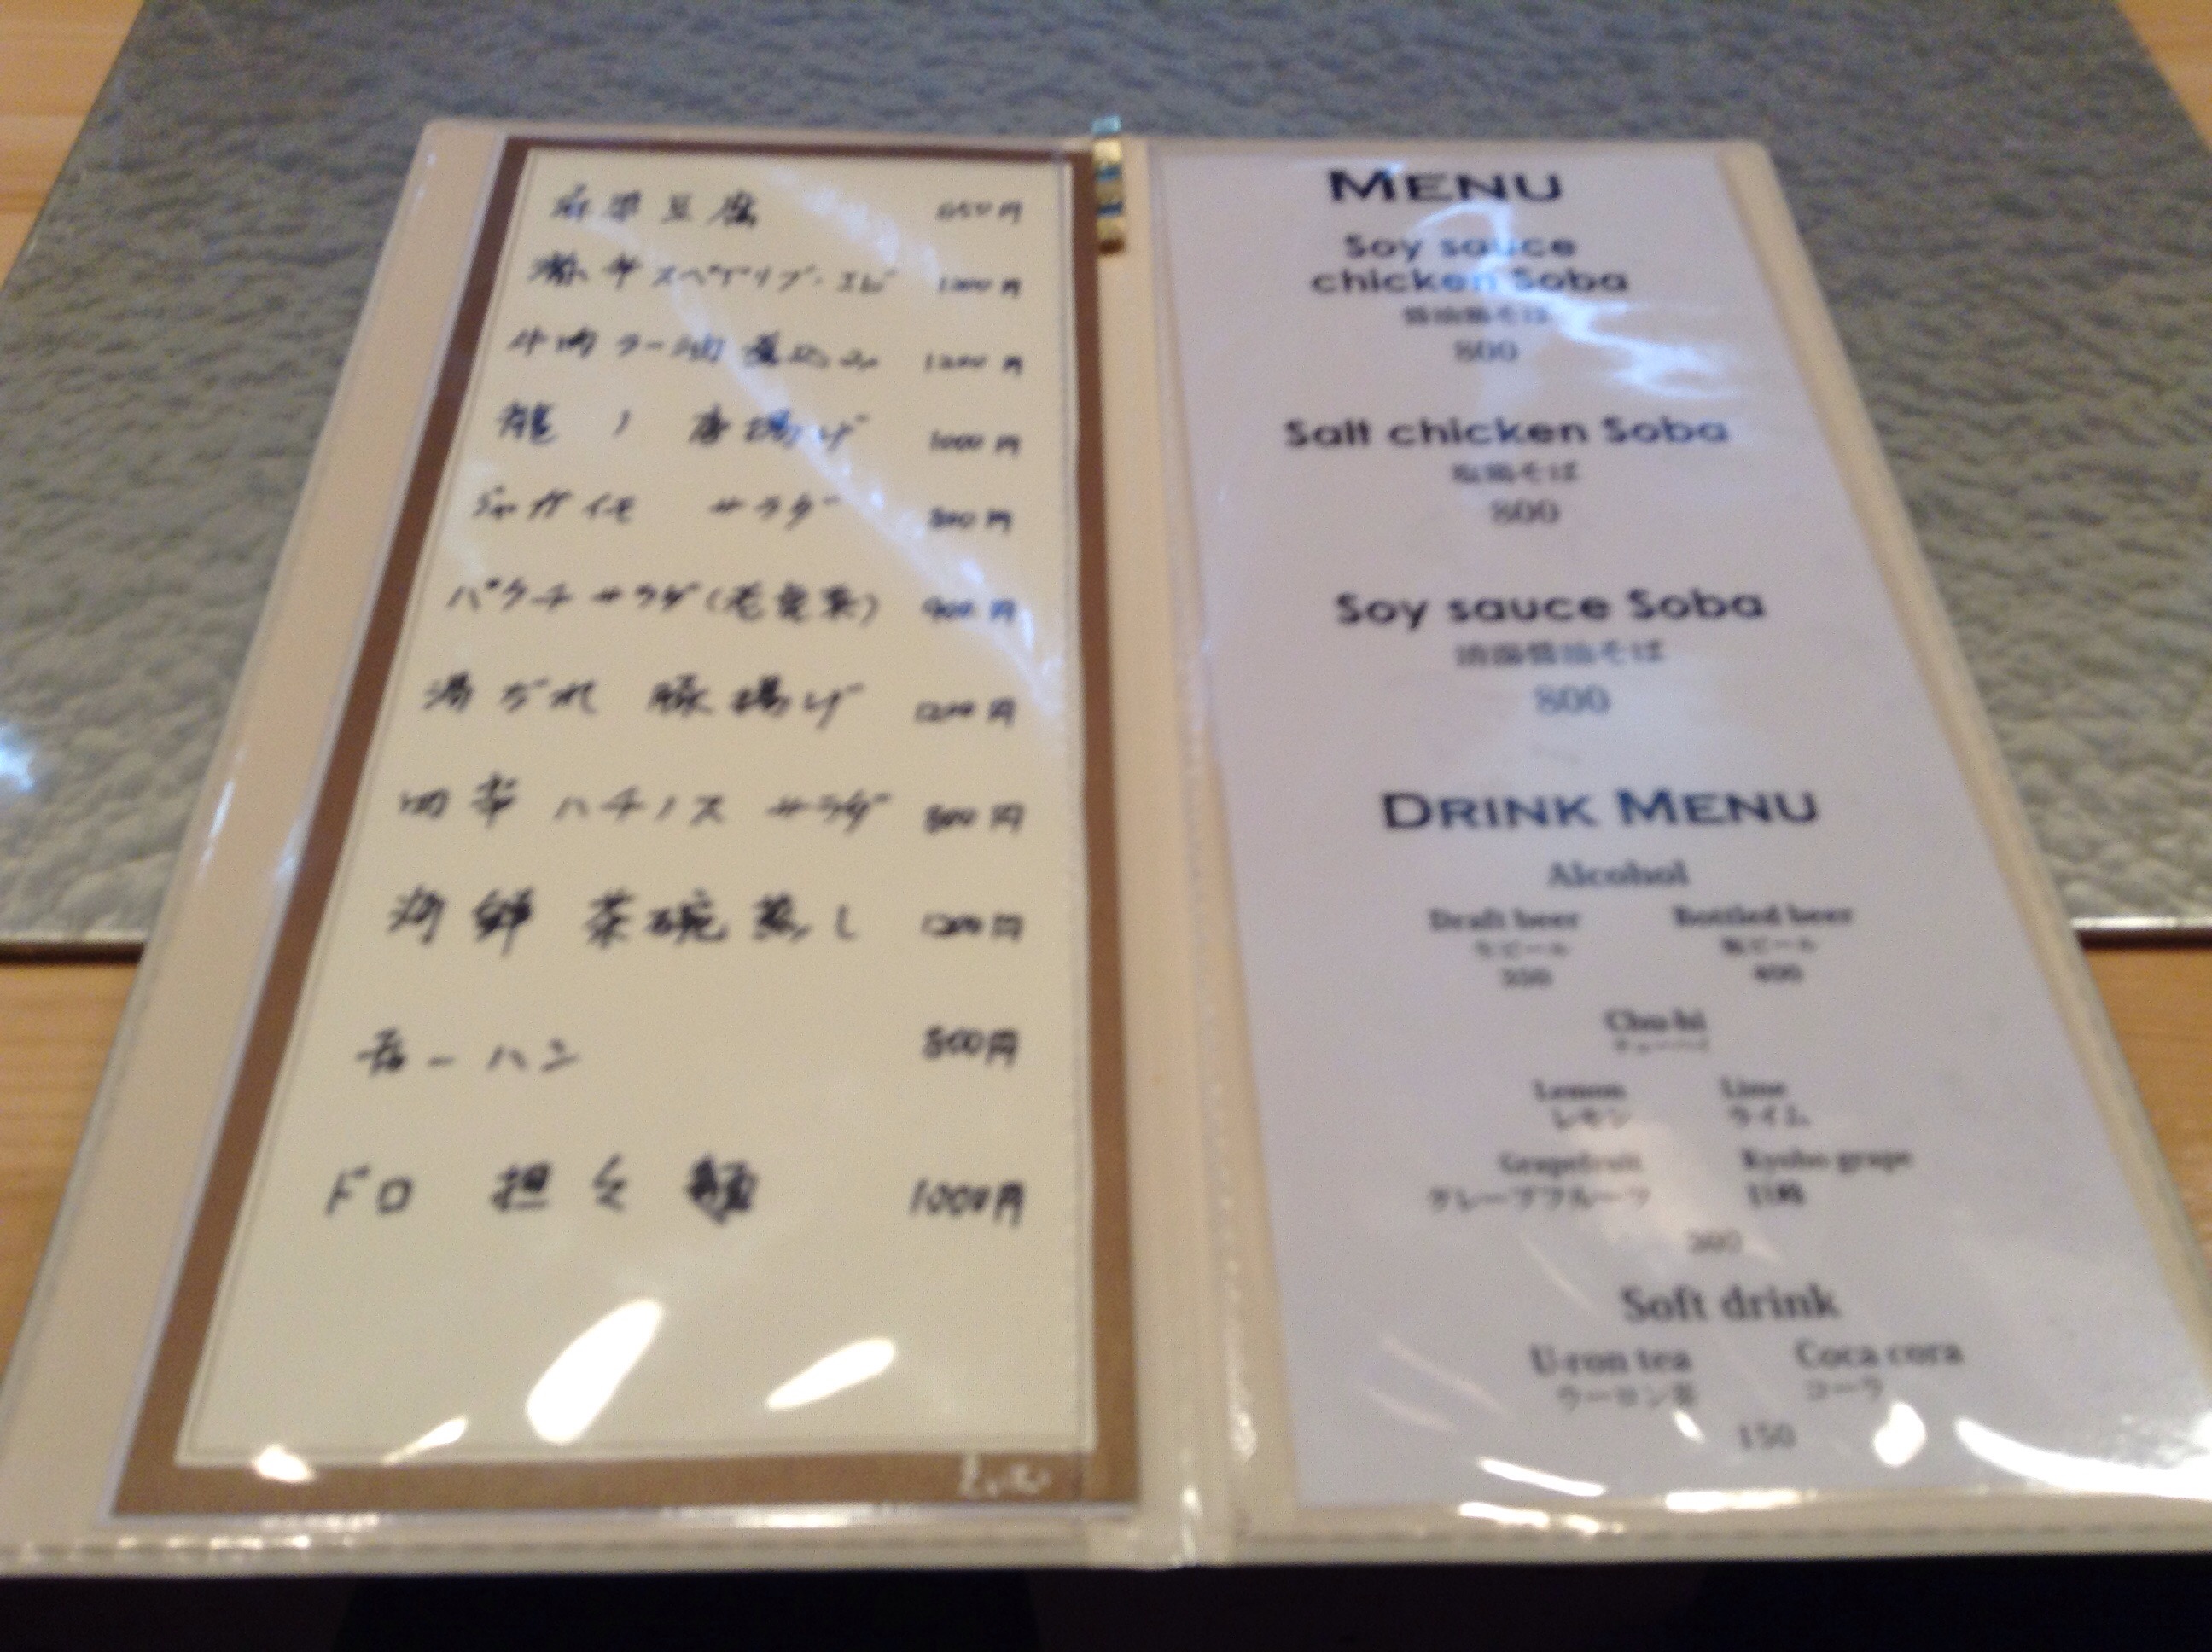 麻婆豆腐 850円
麻辛スペアリブ・エビ 1200円
牛肉ラー油煮込み 1200円
龍ノ唐揚げ 1000円
ジャガイモ サラダ 800円
パクチーサラダ(老虎菜) 900円
湯だれ 豚揚げ 1200円
四川 ハチノス サラダ 800円
海鮮 茶碗蒸し 1200円
チャーハン 800円
ドロ 担々麺 1000円
MENU
Soy sauce
chicken Soba
醤油鶏そば
800
Salt chicken Soba
塩鶏そば
800
Soy sauce Soba
醤油そば
800
DRINK MENU
Alcohol
Draft beer Bottled beer
生ビール 瓶ビール
400
Chu-hi
チューハイ
Lemon Lime
レモン ライム
Grapefruit Kyoho grape
グレープフルーツ 巨峰
Soft drink
U-ron tea Coca cora
ウーロン茶 コーラ
150